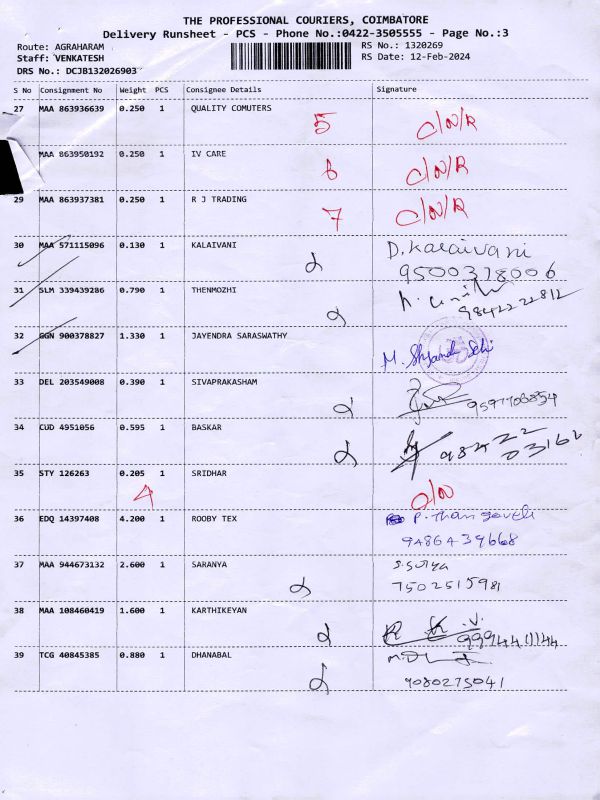 THE PROFESSIONAL COURIERS, COIMBATORE
Delivery Runsheet - PCS - Phone No.:0422-3505555 - Page No.:3
Route: AGRAHARAM RS No.: 1320269
Staff: VENKATESH RS Date: 12-Feb-2024
DRS No.: DCJB132026903
S No Consignment No Weight PCS Consignee Details Signature
27 MAA 863936639 0.250 1 QUALITY COMUTERS 5 C/N/R
MAA 863950192 0.250 1 IV CARE 6 C/N/R
29 MAA 863937381 0.250 1 R J TRADING 7 C/N/R
30 MAA 571115096 0.130 1 KALAIVANI D. Kalaivani
9500378006
31 SLM 339439286 0.790 1 THENMOZHI
9842222812
32 GGN 900378827 1.330 1 JAYENDRA SARASWATHY
M.
33 DEL 203549008 0.390 1 SIVAPRAKASHAM
34 CUD 4951056 0.595 1 BASKAR
98422
03162
35 STY 126263 0.205 1 SRIDHAR
4
36 EDQ 14397408 4.200 1 ROOBY TEX P. Thangavelu
9486439668
37 MAA 944673132 2.600 1 SARANYA S. Surya
7502515981
38 MAA 108460419 1.600 1 KARTHIKEYAN
39 TCG 40845385 0.880 1 DHANABAL
9080275041